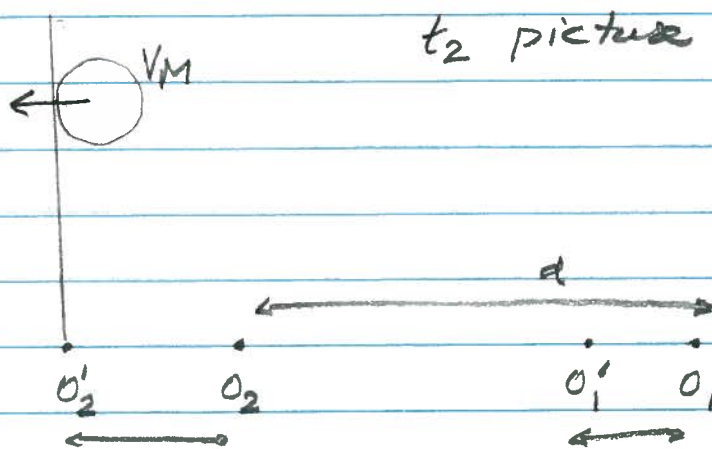 t₂ picture
V_M
d
O₂' O₂ O₁' O₁